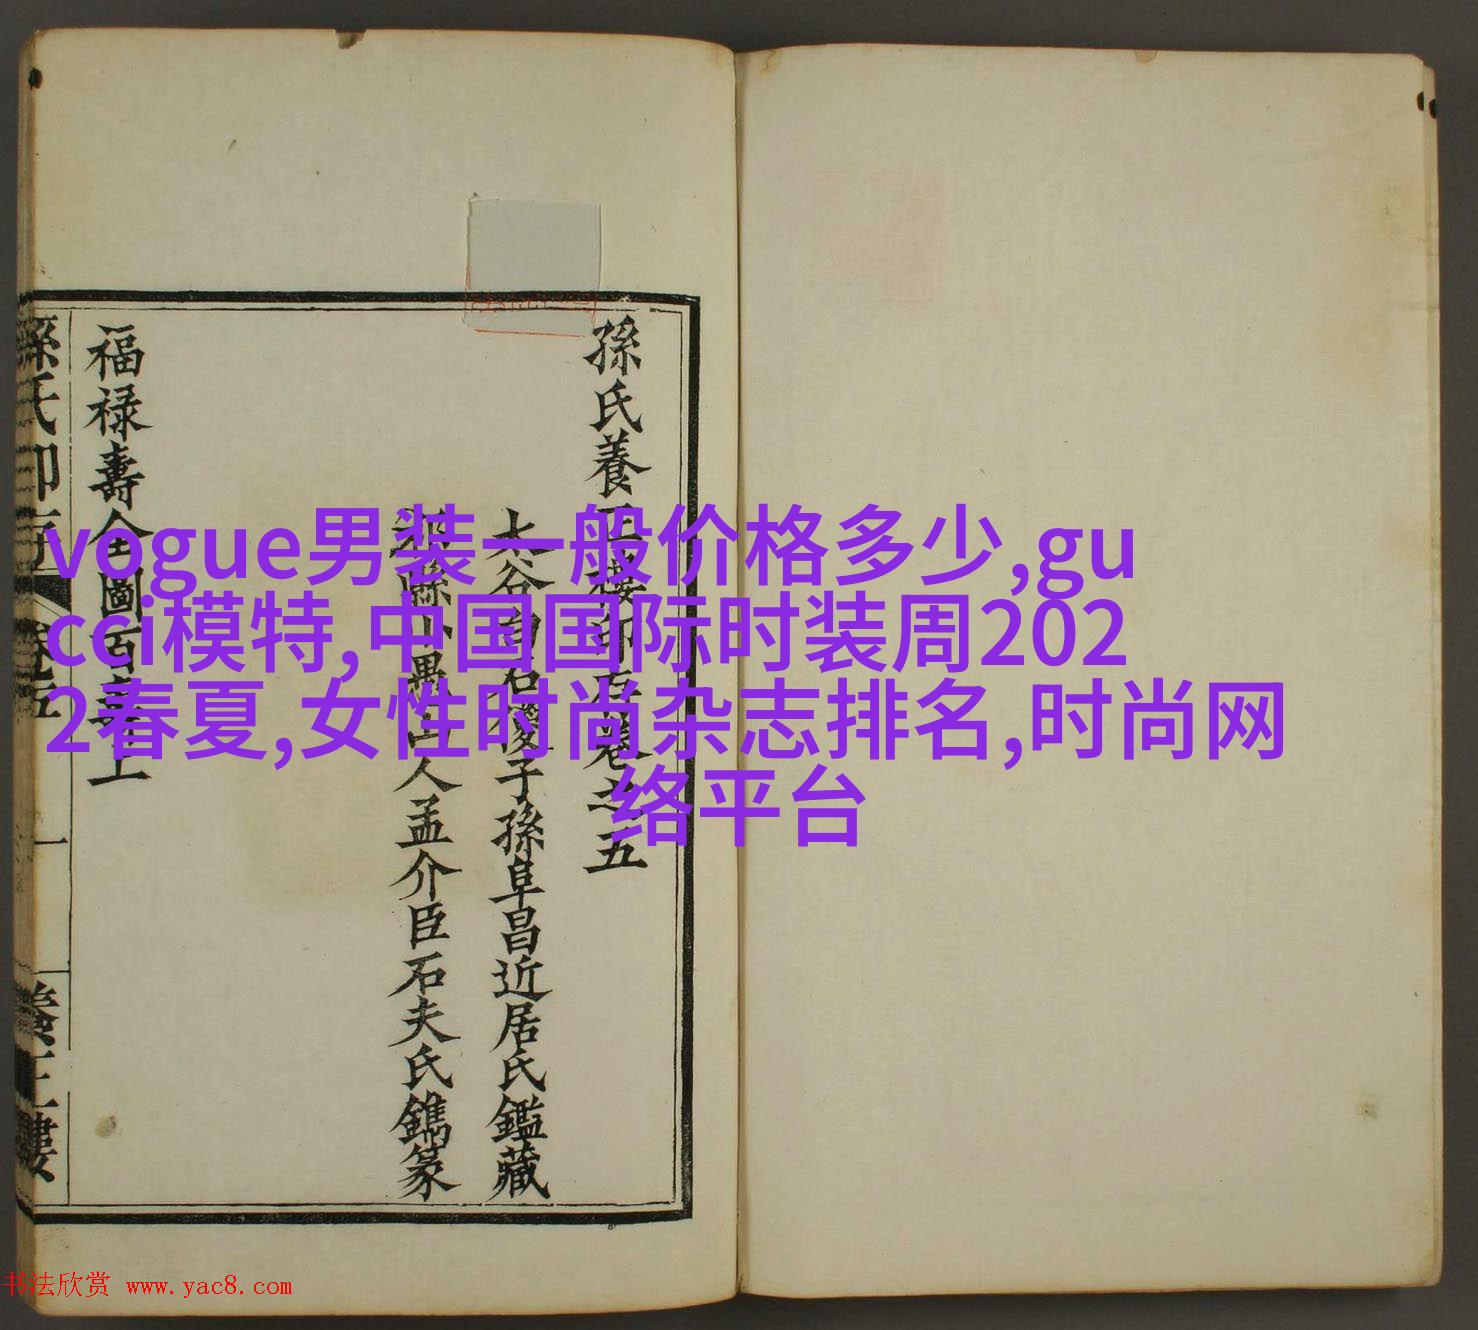 孫氏養正樓印存卷之五
太谷石子孫阜昌近居氏鑑藏
縣愚山人孟介臣石夫氏鐫篆
福禄壽全圖百壽上
孫氏印存
卷五
一
養正樓
vogue男装一般价格多少,gu
cci模特,中国国际时装周202
2春夏,女性时尚杂志排名,时尚网
络平台
书法欣赏 www.yac8.com